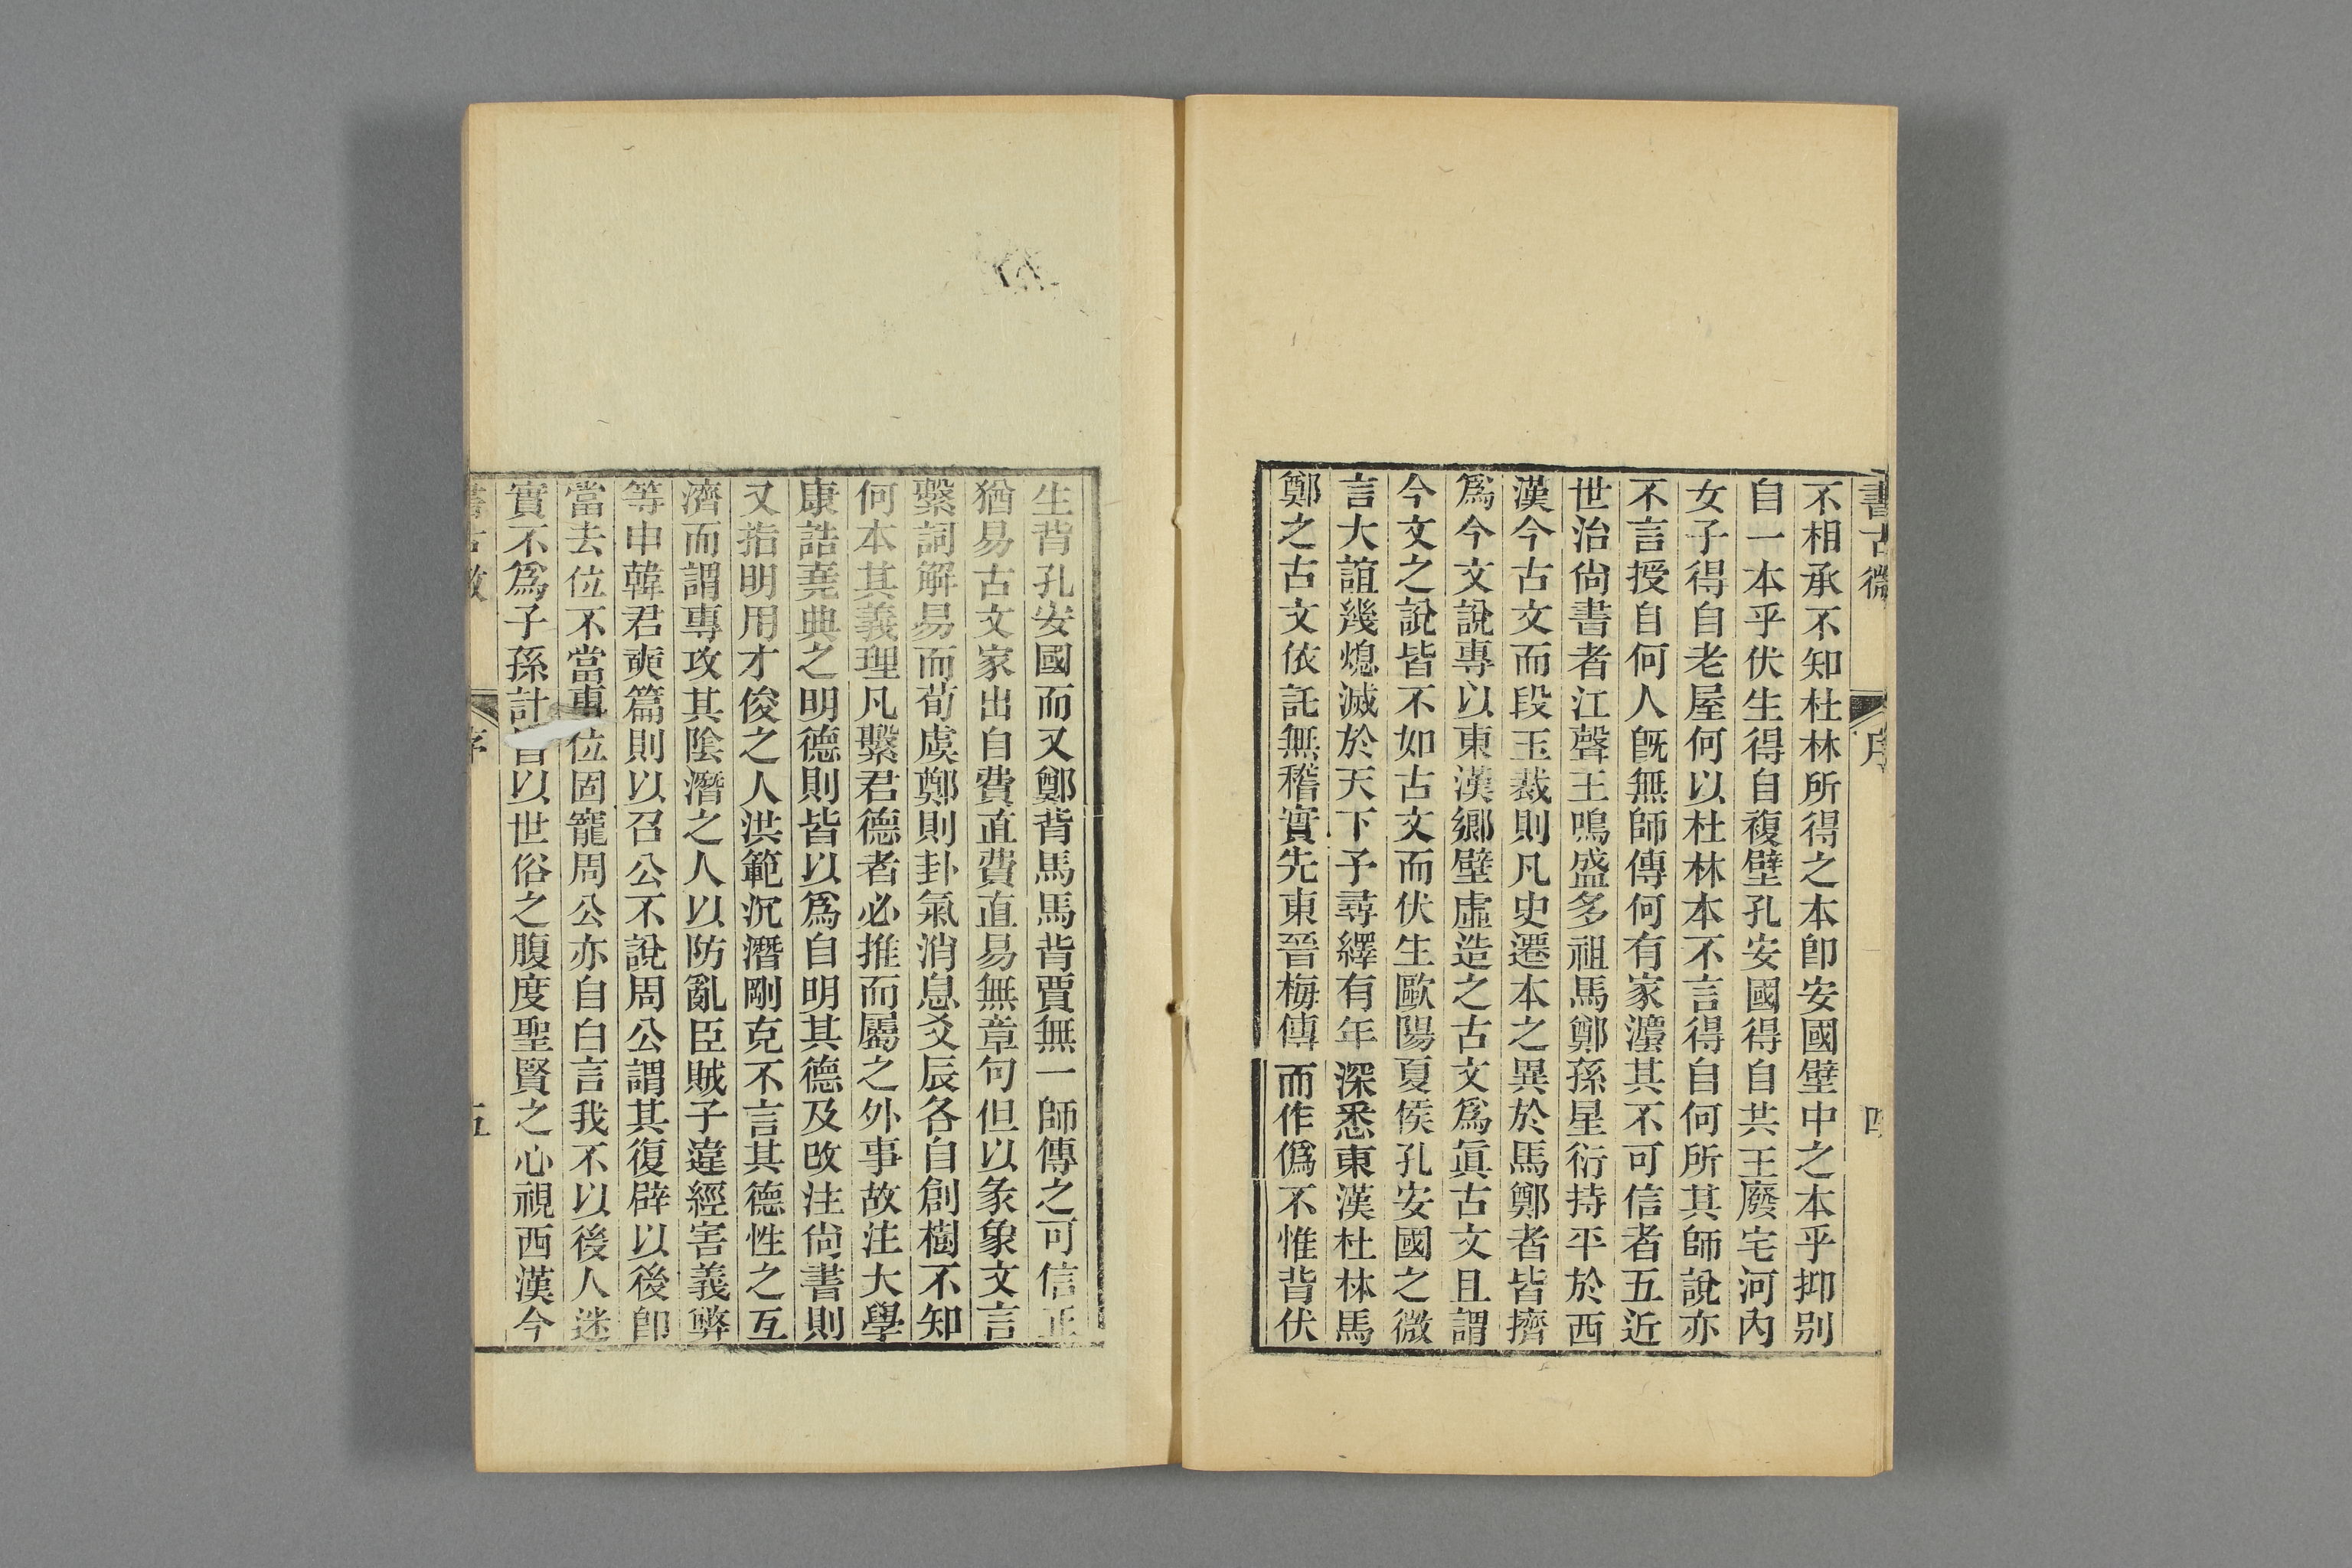 書古微
序
四
不相承不知杜林所得之本卽安國壁中之本乎抑别
自一本乎伏生得自複壁孔安國得自共王廢宅河內
女子得自老屋何以杜林本不言得自何所其師說亦
不言授自何人旣無師傳何有家灋其不可信者五近
世治尙書者江聲王鳴盛多祖馬鄭孫星衍持平於西
漢今古文而段玉裁則凡史遷本之異於馬鄭者皆擠
爲今文說專以東漢鄕壁虛造之古文爲眞古文且謂
今文之說皆不如古文而伏生歐陽夏侯孔安國之微
言大誼幾熄滅於天下予尋繹有年深悉東漢杜林馬
鄭之古文依託無稽實先東晉梅傳而作僞不惟背伏
生背孔安國而又鄭背馬馬背賈無一師傳之可信正
猶易古文家出自費直費直易無章句但以彖象文言
繫詞解易而荀虞鄭則卦氣消息爻辰各自創樹不知
何本其義理凡繫君德者必推而屬之外事故注大學
康誥堯典之明德則皆以爲自明其德及改注尙書則
又指明用才俊之人洪範沉潛剛克不言其德性之互
濟而謂專攻其陰潛之人以防亂臣賊子違經害義弊
等申韓君奭篇則以召公不說周公謂其復辟以後卽
當去位不當專位固寵周公亦自白言我不以後人迷
實不爲子孫計皆以世俗之腹度聖賢之心視西漢今
書古微
序
五